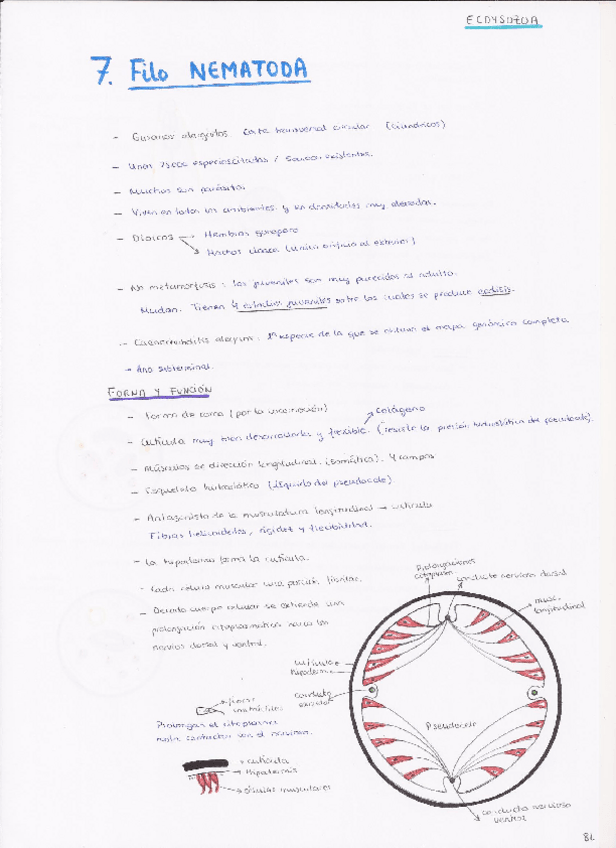 ECDYSOZOA
7. Filo NEMATODA
- Gusanos alargados. Corte transversal circular (Cilíndricos)
- Unas 25.000 especies citadas / 500.000 existentes.
- Muchos son parásitos.
- Viven en todos los ambientes y en densidades muy elevadas.
- Dioicos → Hembras gonoporo
→ Machos cloaca (único orificio al exterior)
- No metamorfosis: los juveniles son muy parecidos al adulto.
Mudan. Tienen 4 estadios juveniles entre los cuales se produce ecdisis.
- Caenorhabditis elegans: 1ª especie de la que se obtuvo el mapa genómico completo
- Ano subterminal.
FORMA Y FUNCIÓN
- Forma de (por la
→ Colágeno
- Cutícula muy bien desarrollada y flexible. (resiste la presión hidrostática del pseudocele).
- Músculos de dirección longitudinal. (somática). 4 campos
- Esqueleto hidrostático (líquido del pseudocele)
- Antagonista de la musculatura longitudinal → cutícula
Fibras helicoidales, rigidez y flexibilidad.
- La hipodermis forma la cutícula.
- Cada célula muscular una porción fibrilar.
- Desde cuerpo celular se extiende una
prolongación citoplasmática hacia los
nervios dorsal y ventral.
Prolongaciones
citoplasm
conducto nervioso dorsal
musc.
longitudinal
cutícula
hipodermis
conducto
excretor
Pseudocele
conducto nervioso
ventral
fibras
contráctiles
Prolongan el citoplasma
hasta contactar con el nervioso.
cutícula
Hipodermis
células musculares
81